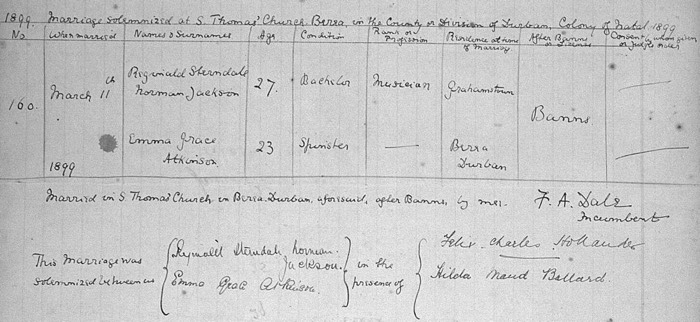 1899. Marriage solemnized at S. Thomas' Church, Berea, in the County or Division of Durban, Colony of Natal 1899
No. When married Names & Surnames Age Condition Rank or Profession Residence at time of Marriage After Banns or Licence Consent by whom given or Judge's order
160. March 11th 1899 Reginald Sterndale Norman Jackson 27. Bachelor Musician Grahamstown Banns
Emma Grace Atkinson. 23 Spinster — Berea Durban
Married in S. Thomas' Church in Berea Durban, aforesaid, after Banns, by me:- F. A. Dale
Incumbent
This Marriage was solemnized between us { Reginald Sterndale Norman Jackson. } in the presence of { Felix Charles Hollander
Emma Grace Atkinson. Hilda Maud Ballard.